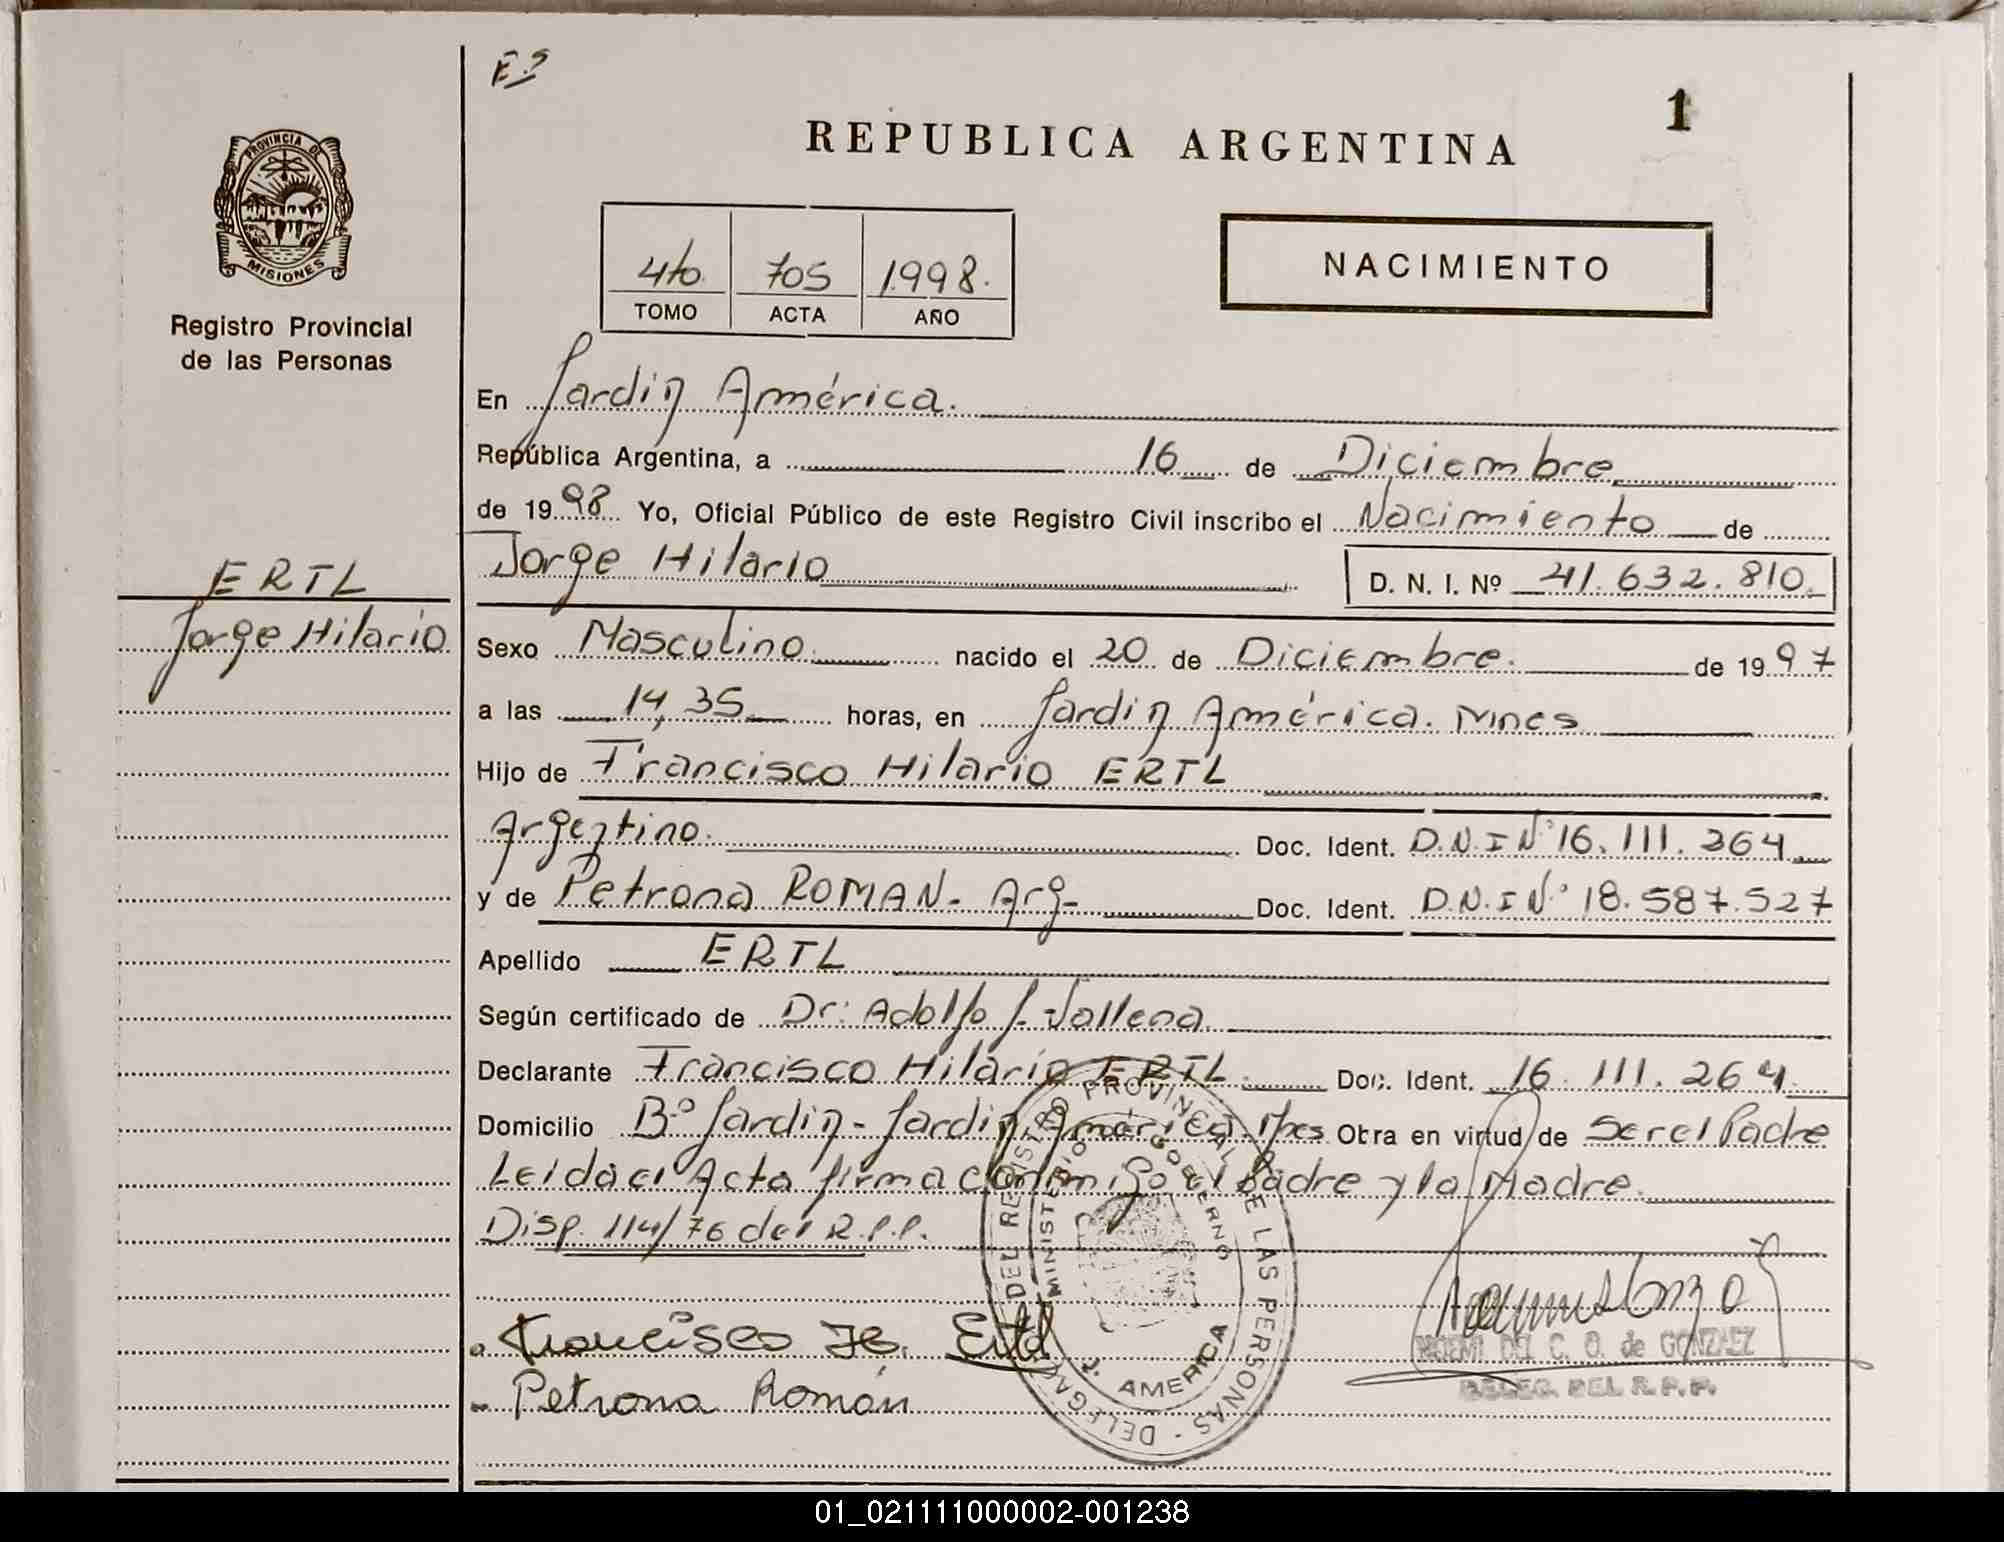 E?
1
REPUBLICA ARGENTINA
PROVINCIA DE
MISIONES
Registro Provincial
de las Personas
4to. 705 1.998.
TOMO ACTA AÑO
NACIMIENTO
En Jardín América.
República Argentina, a 16 de Diciembre
de 1998 Yo, Oficial Público de este Registro Civil inscribo el Nacimiento de
Jorge Hilario D. N. I. Nº 41.632.810.
ERTL
Jorge Hilario
Sexo Masculino nacido el 20 de Diciembre. de 1997
a las 14,35 horas, en Jardín América. Mnes
Hijo de Francisco Hilario ERTL
Argentino. Doc. Ident. D.N.I Nº 16.111.264
y de Petrona ROMAN- Arg- Doc. Ident. D.N.I Nº 18.587.527
Apellido ERTL
Según certificado de Dr: Adolfo J.
Declarante Francisco Hilario ERTL Doc. Ident. 16.111.264
Domicilio Bº Jardín - Jardín América. Mnes Obra en virtud de Ser el Padre
Leida el Acta firma conmigo el Padre y la Madre.
Disp. 114/76 del R.P.P.
Francisco H. Ertl
Petrona Román
DELEGAC DEL REGISTRO PROVINCIAL DE LAS PERSONAS
MINISTERIO GOBIERNO
J. AMERICA
NOEMI DEL C. O. de GONZALEZ
DELEG. DEL R.P.P.
01_021111000002-001238